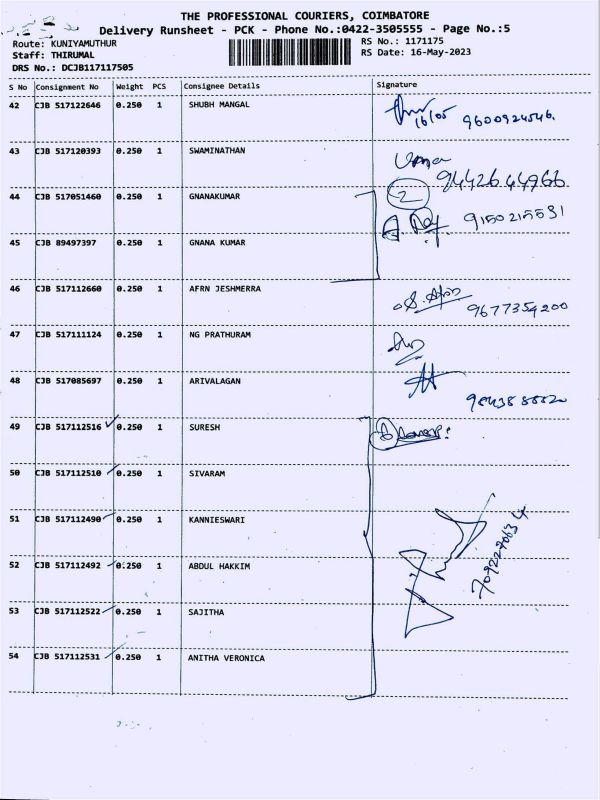 THE PROFESSIONAL COURIERS, COIMBATORE
Delivery Runsheet - PCK - Phone No.:0422-3505555 - Page No.:5
Route: KUNIYAMUTHUR RS No.: 1171175
Staff: THIRUMAL RS Date: 16-May-2023
DRS No.: DCJB117117505
S No Consignment No Weight PCS Consignee Details Signature
42 CJB 517122646 0.250 1 SHUBH MANGAL 16/05 9600924546.
43 CJB 517120393 0.250 1 SWAMINATHAN Uma 9442644966
44 CJB 517051460 0.250 1 GNANAKUMAR 2 9150215531
45 CJB 89497397 0.250 1 GNANA KUMAR
46 CJB 517112660 0.250 1 AFRN JESHMERRA 9677354200
47 CJB 517111124 0.250 1 NG PRATHURAM
48 CJB 517085697 0.250 1 ARIVALAGAN
49 CJB 517112516 0.250 1 SURESH 6
50 CJB 517112510 0.250 1 SIVARAM
51 CJB 517112490 0.250 1 KANNIESWARI
52 CJB 517112492 0.250 1 ABDUL HAKKIM
53 CJB 517112522 0.250 1 SAJITHA
54 CJB 517112531 0.250 1 ANITHA VERONICA